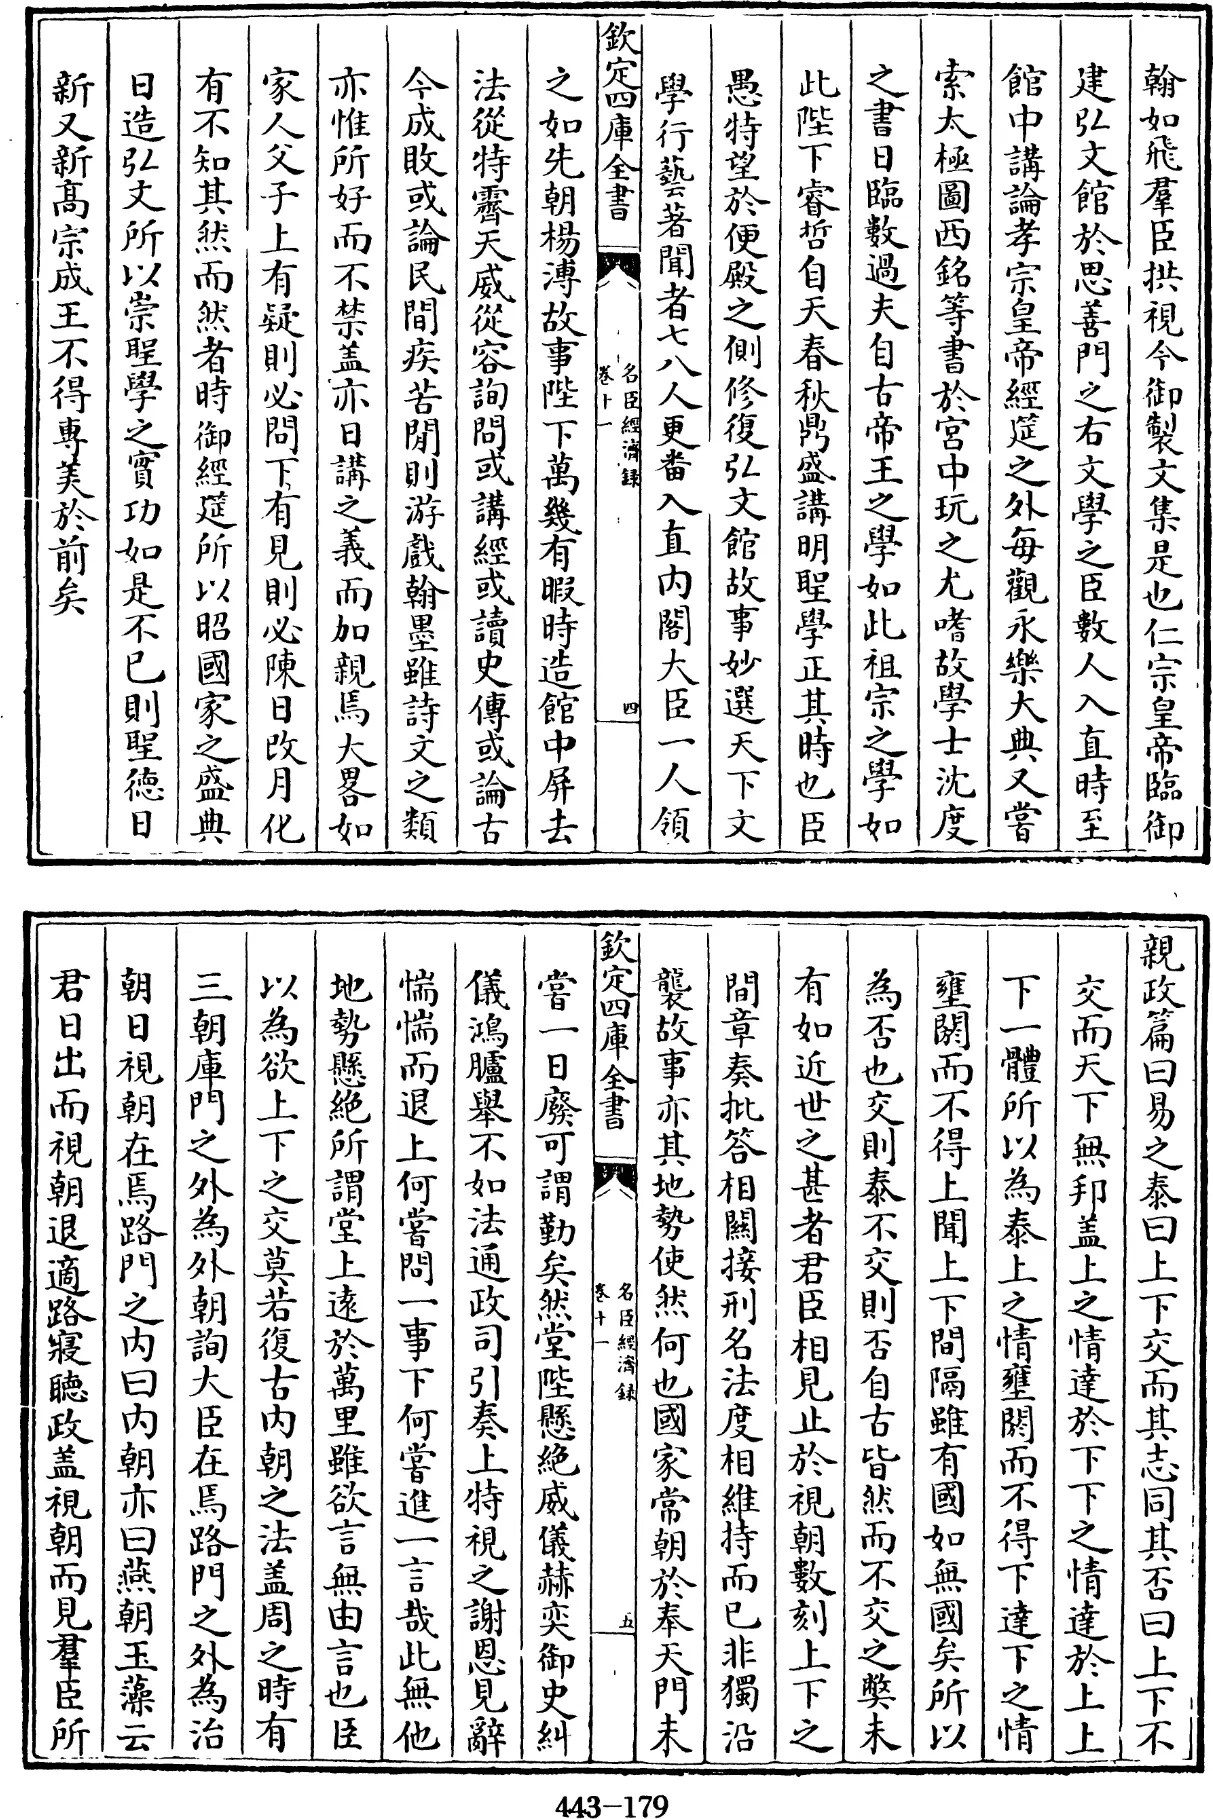 翰如飛羣臣拱視今御製文集是也仁宗皇帝臨御
建弘文館於思善門之右文學之臣數人入直時至
館中講論孝宗皇帝經筵之外每觀永樂大典又嘗
索太極圖西銘等書於宮中玩之尤嗜故學士沈度
之書日臨數過夫自古帝王之學如此祖宗之學如
此陛下睿哲自天春秋鼎盛講明聖學正其時也臣
愚特望於便殿之側修復弘文館故事妙選天下文
學行藝著聞者七八人更畨入直内閣大臣一人領
欽定四庫全書
名臣經濟録
卷十一
四
之如先朝楊溥故事陛下萬幾有暇時造館中屏去
法從特霽天威從容詢問或講經或讀史傳或論古
今成敗或論民間疾苦閒則游戲翰墨雖詩文之類
亦惟所好而不禁盖亦日講之義而加親焉大畧如
家人父子上有疑則必問下有見則必陳日改月化
有不知其然而然者時御經筵所以昭國家之盛典
日造弘文所以崇聖學之實功如是不已則聖德日
新又新高宗成王不得專美於前矣
親政篇曰易之泰曰上下交而其志同其否曰上下不
交而天下無邦盖上之情達於下下之情達於上上
下一體所以為泰上之情壅閼而不得下達下之情
壅閼而不得上聞上下間隔雖有國如無國矣所以
為否也交則泰不交則否自古皆然而不交之弊未
有如近世之甚者君臣相見止於視朝數刻上下之
間章奏批答相關接刑名法度相維持而已非獨沿
襲故事亦其地勢使然何也國家常朝於奉天門未
欽定四庫全書
名臣經濟録
卷十一
五
嘗一日廢可謂勤矣然堂陛懸絶威儀赫奕御史糾
儀鴻臚舉不如法通政司引奏上特視之謝恩見辭
惴惴而退上何嘗問一事下何嘗進一言哉此無他
地勢懸絶所謂堂上遠於萬里雖欲言無由言也臣
以為欲上下之交莫若復古内朝之法盖周之時有
三朝庫門之外為外朝詢大臣在焉路門之外為治
朝日視朝在焉路門之内曰内朝亦曰燕朝玉藻云
君日出而視朝退適路寢聽政盖視朝而見羣臣所
443-179